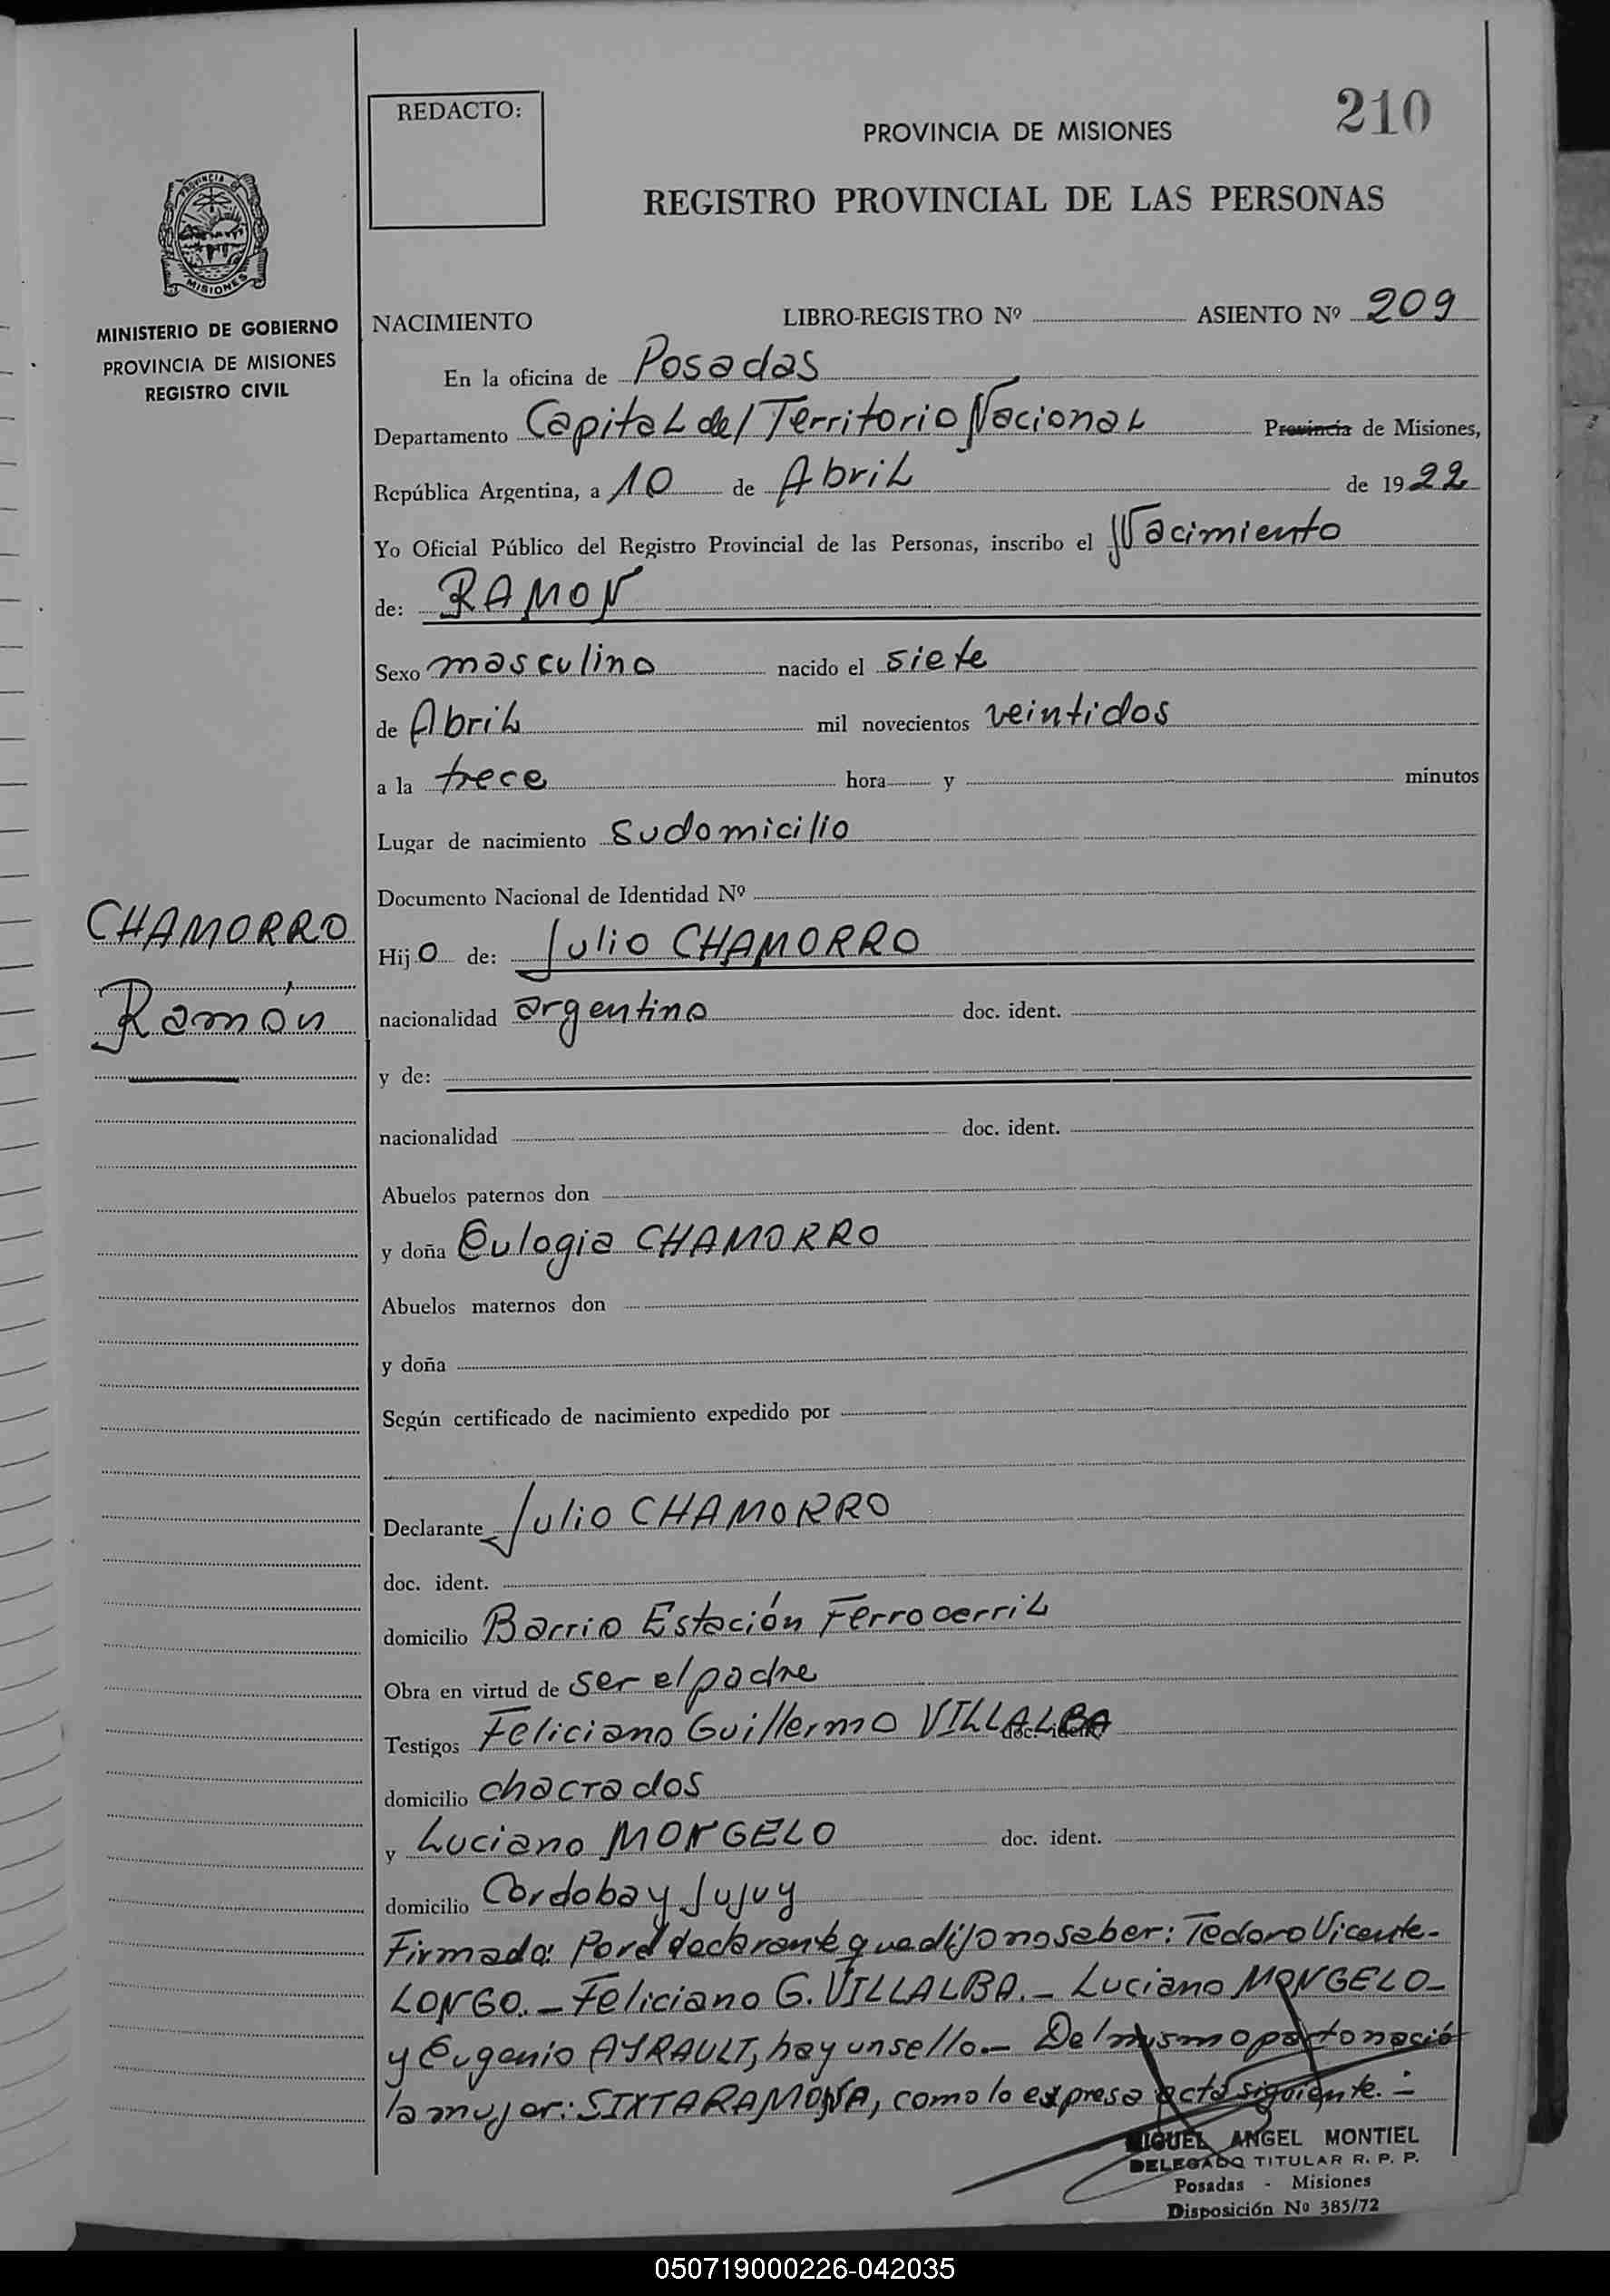 210
REDACTO:
PROVINCIA DE MISIONES
REGISTRO PROVINCIAL DE LAS PERSONAS
PROVINCIA D
MISIONES
MINISTERIO DE GOBIERNO
PROVINCIA DE MISIONES
REGISTRO CIVIL
NACIMIENTO LIBRO-REGISTRO Nº ASIENTO Nº 209
En la oficina de Posadas
Departamento Capital del Territorio Nacional Provincia de Misiones,
República Argentina, a 10 de Abril de 1922
Yo Oficial Público del Registro Provincial de las Personas, inscribo el Nacimiento
de: RAMON
Sexo masculino nacido el siete
de Abril mil novecientos veintidos
a la trece hora y minutos
Lugar de nacimiento Sudomicilio
Documento Nacional de Identidad Nº
CHAMORRO
Ramón
Hijo de: Julio CHAMORRO
nacionalidad argentino doc. ident.
y de:
nacionalidad doc. ident.
Abuelos paternos don
y doña Eulogia CHAMORRO
Abuelos maternos don
y doña
Según certificado de nacimiento expedido por
Declarante Julio CHAMORRO
doc. ident.
domicilio Barrio Estación Ferrocarril
Obra en virtud de ser el padre
Testigos Feliciano Guillermo VILLALBA doc. ident.
domicilio chacra dos
y Luciano MONGELO doc. ident.
domicilio Cordoba y Jujuy
Firmado: Por el declarante que dijo no saber: Teodoro Vicente-
LONGO.- Feliciano G. VILLALBA.- Luciano MONGELO-
y Eugenio AYRAULT, hay un sello.- Del mismo parto nació
la mujer: SIXTA RAMONA, como lo expresa acta siguiente.-
MIGUEL ANGEL MONTIEL
DELEGADO TITULAR R. P. P.
Posadas - Misiones
Disposición Nº 385/72
050719000226-042035